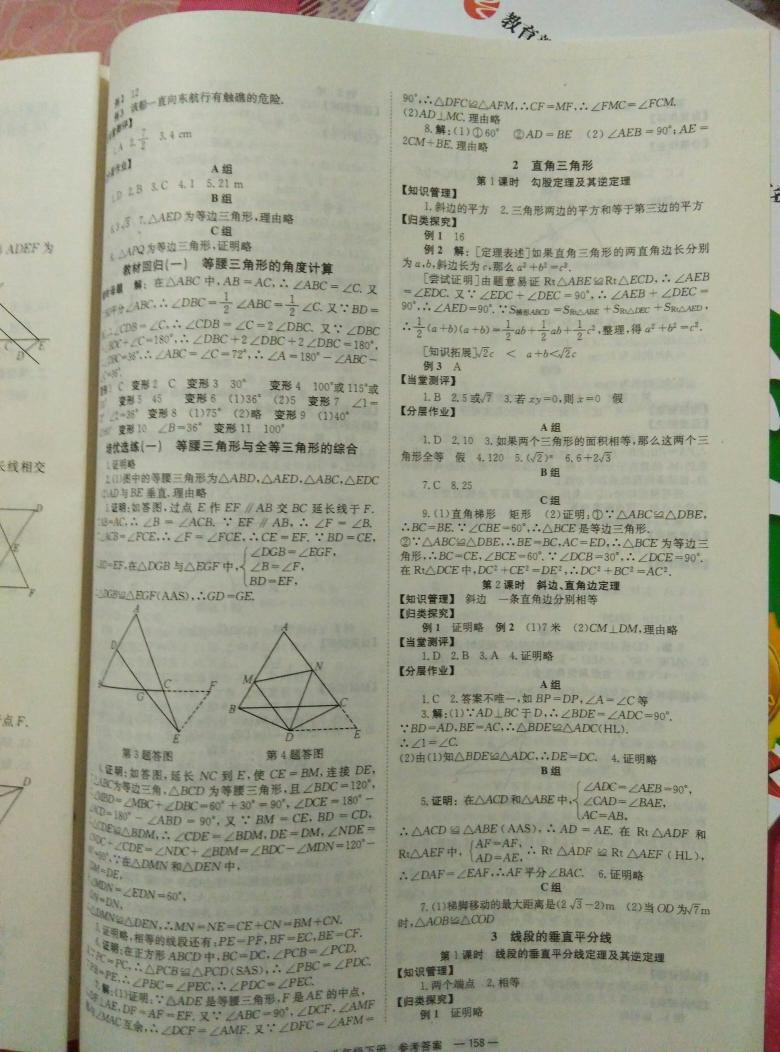 教育
ADEF 为
长线相交
点 F.
例2 12
例3 该船一直向东航行有触礁的危险.
1.A 2.7/2 3.4 cm
A 组
1.D 2.B 3.C 4.1 5.21 m
B 组
6.3√3 7.△AED 为等边三角形,理由略
C 组
8.△APQ 为等边三角形,证明略
教材回归(一) 等腰三角形的角度计算
解:在△ABC 中,AB=AC,∴∠ABC=∠C. 又
平分∠ABC,∴∠DBC=1/2∠ABC=1/2∠C. 又∵BD=
∴∠CDB=∠C,∴∠CDB=∠C=2∠DBC. 又∵∠DBC
+∠C=180°,∴∠DBC+2∠DBC+2∠DBC=180°,
∠DBC=36°,∴∠ABC=∠C=72°,∴∠A=180°-∠ABC-
∠C=36°.
C 变形2 C 变形3 30° 变形4 100°或115°或
变形5 45 变形6 (1)36° (2)5 变形7 ∠1=
∠2=36° 变形8 (1)75° (2)略 变形9 (1)40°
变形10 ∠B=36° 变形11 100°
培优选练(一) 等腰三角形与全等三角形的综合
1.证明略
2.(1)图中的等腰三角形为△ABD,△AED,△ABC,△EDC
(2)AD 与 BE 垂直. 理由略
3.证明:如答图,过点 E 作 EF∥AB 交 BC 延长线于 F.
∵AB=AC,∴∠B=∠ACB. ∵EF∥AB,∴∠F=∠B.
∵∠ACB=∠FCE,∴∠F=∠FCE,∴CE=EF. ∵BD=CE,
∴BD=EF,在△DGB 与△EGF 中,{∠DGB=∠EGF,
∠B=∠F,
BD=EF,
∴△DGB≌△EGF(AAS),∴GD=GE.
A
D
C
F
G
E
A
M
N
B
C
D
E
第3题答图 第4题答图
4.证明:如答图,延长 NC 到 E,使 CE=BM,连接 DE,
∵△ABC 为等边三角形,△BCD 为等腰三角形,且∠BDC=120°,
∴∠MBD=∠MBC+∠DBC=60°+30°=90°,∠DCE=180°-
∠ACD=180°-∠ABD=90°,又∵BM=CE,BD=CD,
∴△CDE≌△BDM,∴∠CDE=∠BDM,DE=DM,∠NDE=
∠NDC+∠CDE=∠NDC+∠BDM=∠BDC-∠MDN=120°-
60°=60°,∵在△DMN 和△DEN 中,
DM=DE,
∠MDN=∠EDN=60°,
DN=DN,
∴△DMN≌△DEN,∴MN=NE=CE+CN=BM+CN.
5.证明略,相等的线段还有:PE=PF,BF=EC,BE=CF.
6.证明:在正方形 ABCD 中,BC=DC,∠PCB=∠PCD.
∵PC=PC,∴△PCB≌△PCD(SAS),∴∠PBC=∠PDC.
∵PB=PE,∴∠PBC=∠PEC,∴∠PDC=∠PEC.
7.解:(1)证明:∵△ADE 是等腰三角形,F 是 AE 的中点,
∴DF⊥AE,DF=AF=EF. 又∵∠ABC=90°,∠DCF,∠AMF
与∠MAC 互余,∴∠DCF=∠AMF. 又∵∠DFC=∠AFM=
90°,∴△DFC≌△AFM,∴CF=MF,∴∠FMC=∠FCM.
(2)AD⊥MC. 理由略
8.解:(1)①60° ②AD=BE (2)∠AEB=90°;AE=
2CM+BE. 理由略
2 直角三角形
第1课时 勾股定理及其逆定理
【知识管理】
1.斜边的平方 2.三角形两边的平方和等于第三边的平方
【归类探究】
例1 16
例2 解:[定理表述]如果直角三角形的两直角边长分别
为 a,b,斜边长为 c,那么 a²+b²=c².
[尝试证明]由题意易证 Rt△ABE≌Rt△ECD,∴∠AEB
=∠EDC. 又∵∠EDC+∠DEC=90°,∴∠AEB+∠DEC=
90°,∴∠AED=90°. ∵S梯形ABCD=SRt△ABE+SRt△DEC+SRt△AED,
∴1/2(a+b)(a+b)=1/2ab+1/2ab+1/2c²,整理,得 a²+b²=c².
[知识拓展]√2c < a+b<√2c
例3 A
【当堂测评】
1.B 2.5或√7 3.若 xy=0,则 x=0 假
【分层作业】
A 组
1.D 2.10 3.如果两个三角形的面积相等,那么这两个三
角形全等 假 4.120 5.(√2)ⁿ 6.6+2√3
B 组
7.C 8.25
C 组
9.(1)直角梯形 矩形 (2)证明:①∵△ABC≌△DBE,
∴BC=BE. ∵∠CBE=60°,∴△BCE 是等边三角形.
②∵△ABC≌△DBE,∴BE=BC,AC=ED,∴△BCE 为等边三
角形,∴BC=CE,∠BCE=60°. ∵∠DCB=30°,∴∠DCE=90°.
在 Rt△DCE 中,DC²+CE²=DE²,∴DC²+BC²=AC².
第2课时 斜边、直角边定理
【知识管理】 斜边 一条直角边分别相等
【归类探究】
例1 证明略 例2 (1)7米 (2)CM⊥DM,理由略
【当堂测评】
1.D 2.B 3.A 4.证明略
【分层作业】
A 组
1.C 2.答案不唯一,如 BP=DP,∠A=∠C 等
3.解:(1)∵AD⊥BC 于 D,∴∠BDE=∠ADC=90°.
∵BD=AD,BE=AC,∴△BDE≌△ADC(HL).
∴∠1=∠C.
(2)由(1)知△BDE≌△ADC,∴DE=DC. 4.证明略
B 组
5.证明:在△ACD 和△ABE 中,{∠ADC=∠AEB=90°,
∠CAD=∠BAE,
AC=AB,
∴△ACD≌△ABE(AAS),∴AD=AE. 在 Rt△ADF 和
Rt△AEF 中,{AF=AF, AD=AE,∴Rt△ADF≌Rt△AEF(HL),
∴∠DAF=∠EAF,∴AF 平分∠BAC. 6.证明略
C 组
7.(1)梯脚移动的最大距离是(2√3-2)m (2)当 OD 为√7m
时,△AOB≌△COD
3 线段的垂直平分线
第1课时 线段的垂直平分线定理及其逆定理
【知识管理】
1.两个端点 2.相等
【归类探究】
例1 证明略
年级下册 参考答案 —158—